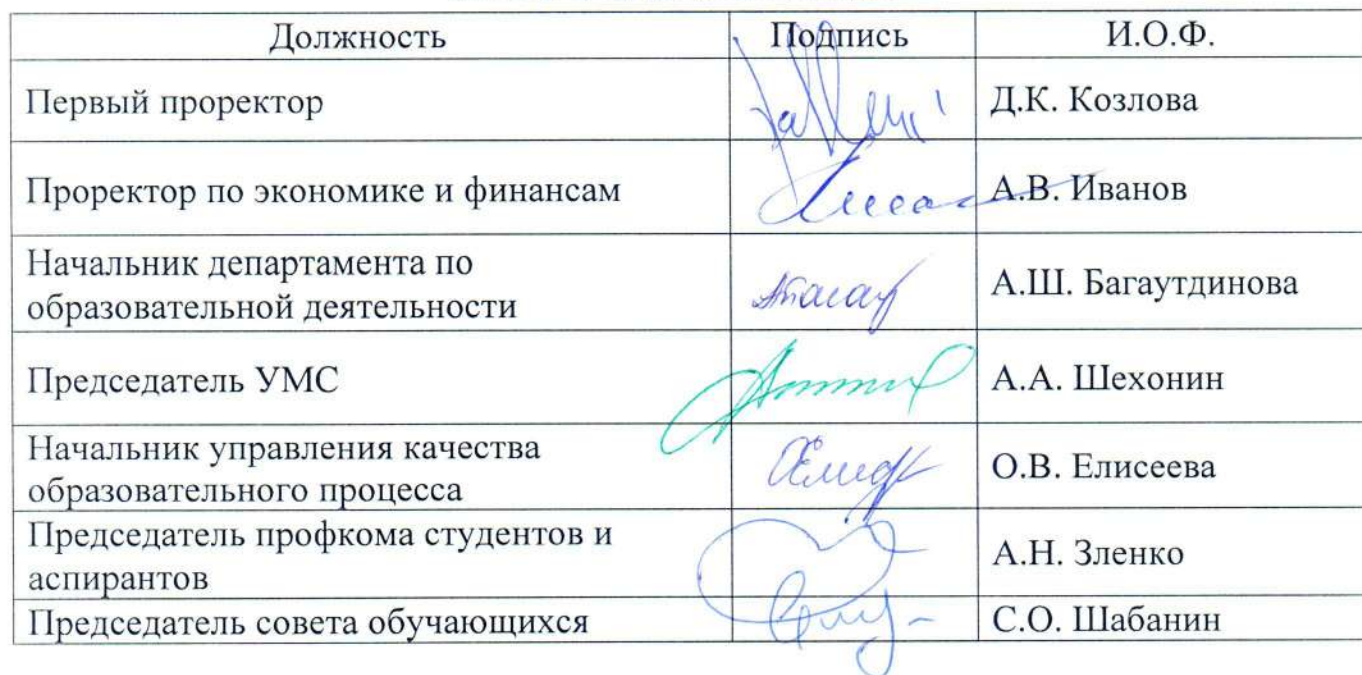 Должность Подпись И.О.Ф.
Первый проректор Д.К. Козлова
Проректор по экономике и финансам А.В. Иванов
Начальник департамента по
образовательной деятельности А.Ш. Багаутдинова
Председатель УМС А.А. Шехонин
Начальник управления качества
образовательного процесса О.В. Елисеева
Председатель профкома студентов и
аспирантов А.Н. Зленко
Председатель совета обучающихся С.О. Шабанин